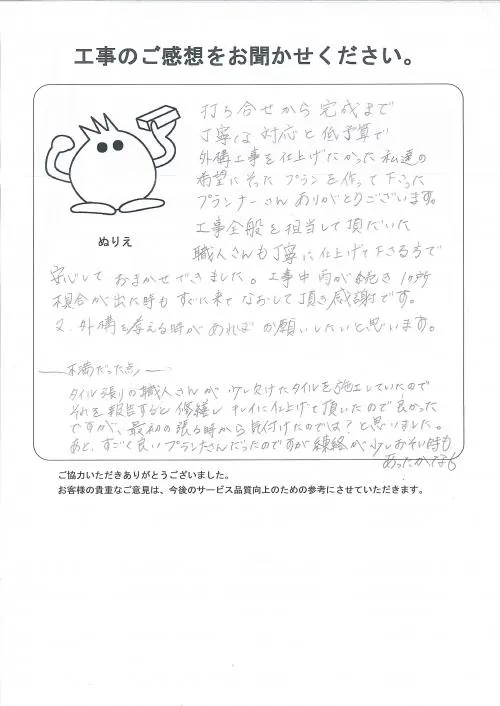 工事のご感想をお聞かせください。
打ち合せから完成まで
丁寧な対応と低予算で
外構工事を仕上げたかった私達の
希望にそったプランを作って下さった
プランナーさんありがとうございます。
工事全般を担当して頂だいた
ぬりえ
職人さんも丁寧に仕上げて下さる方で
安心しておまかせできました。工事中雨が続き1ヶ所
具合が出た時もすぐに来てなおして頂き感謝です。
又、外構を考える時があればお願いしたいと思います。
不満だった点
タイル張りの職人さんが少し欠けたタイルを施工していたので
それを報告すると修繕しキレイに仕上げて頂いたので良かった
ですが、最初の張る時から気付けたのでは?と思いました。
あと、すごく良いプランナさんだったのですが連絡が少しおそい時も
あったかなぁ
ご協力いただきありがとうございました。
お客様の貴重なご意見は、今後のサービス品質向上のための参考にさせていただきます。